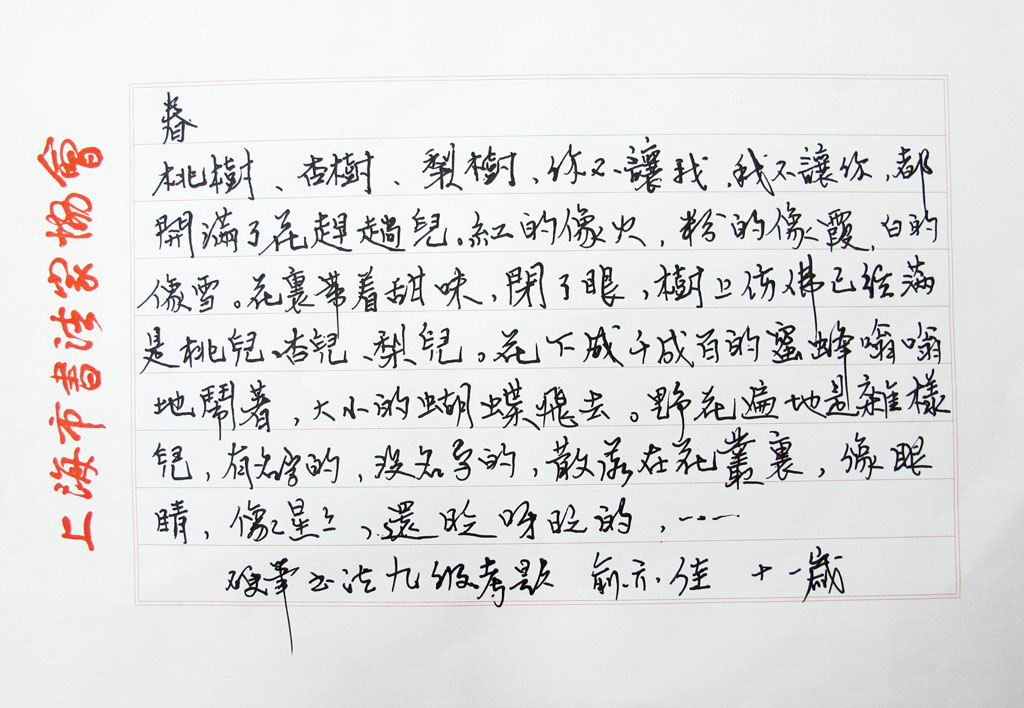 上海市書法家協會
春
桃樹、杏樹、梨樹、你不讓我,我不讓你,都
開滿了花趕趟兒。紅的像火,粉的像霞,白的
像雪。花裏帶着甜味,閉了眼,樹上仿佛已經滿
是桃兒、杏兒、梨兒。花下成千成百的蜜蜂嗡嗡
地鬧著,大小的蝴蝶飛去。野花遍地是雜樣
兒,有名字的,没名字的,散落在花叢裏,像眼
睛,像星星,還眨呀眨的,……
硬筆书法九级考题 俞亦佳 十一歲